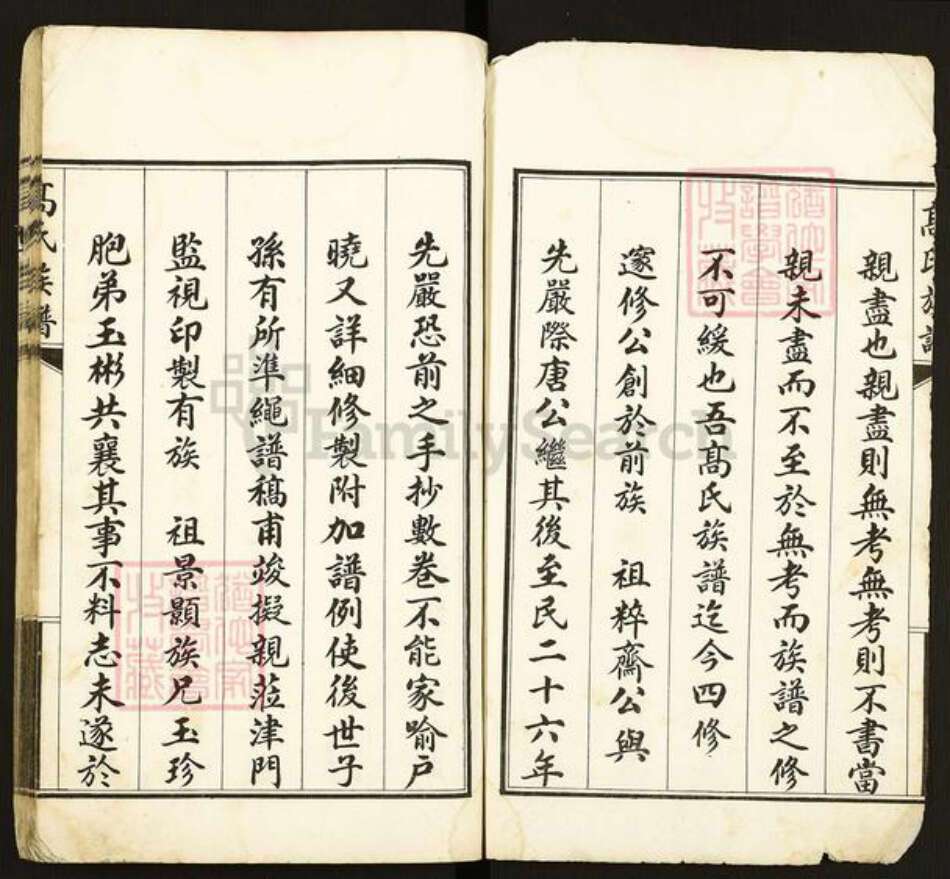 高氏族譜
親盡也親盡則無考無考則不書當
親未盡而不至於無考而族譜之修
不可緩也吾高氏族譜迄今四修
邃修公創於前族　祖粹齋公與
先嚴際唐公繼其後至民二十六年
先嚴恐前之手抄數卷不能家喻戶
曉又詳細修製附加譜例使後世子
孫有所準繩譜稿甫竣擬親蒞津門
監視印製有族　祖景顥族兄玉珍
胞弟玉彬共襄其事不料志未遂於
高氏族譜
FamilySearch